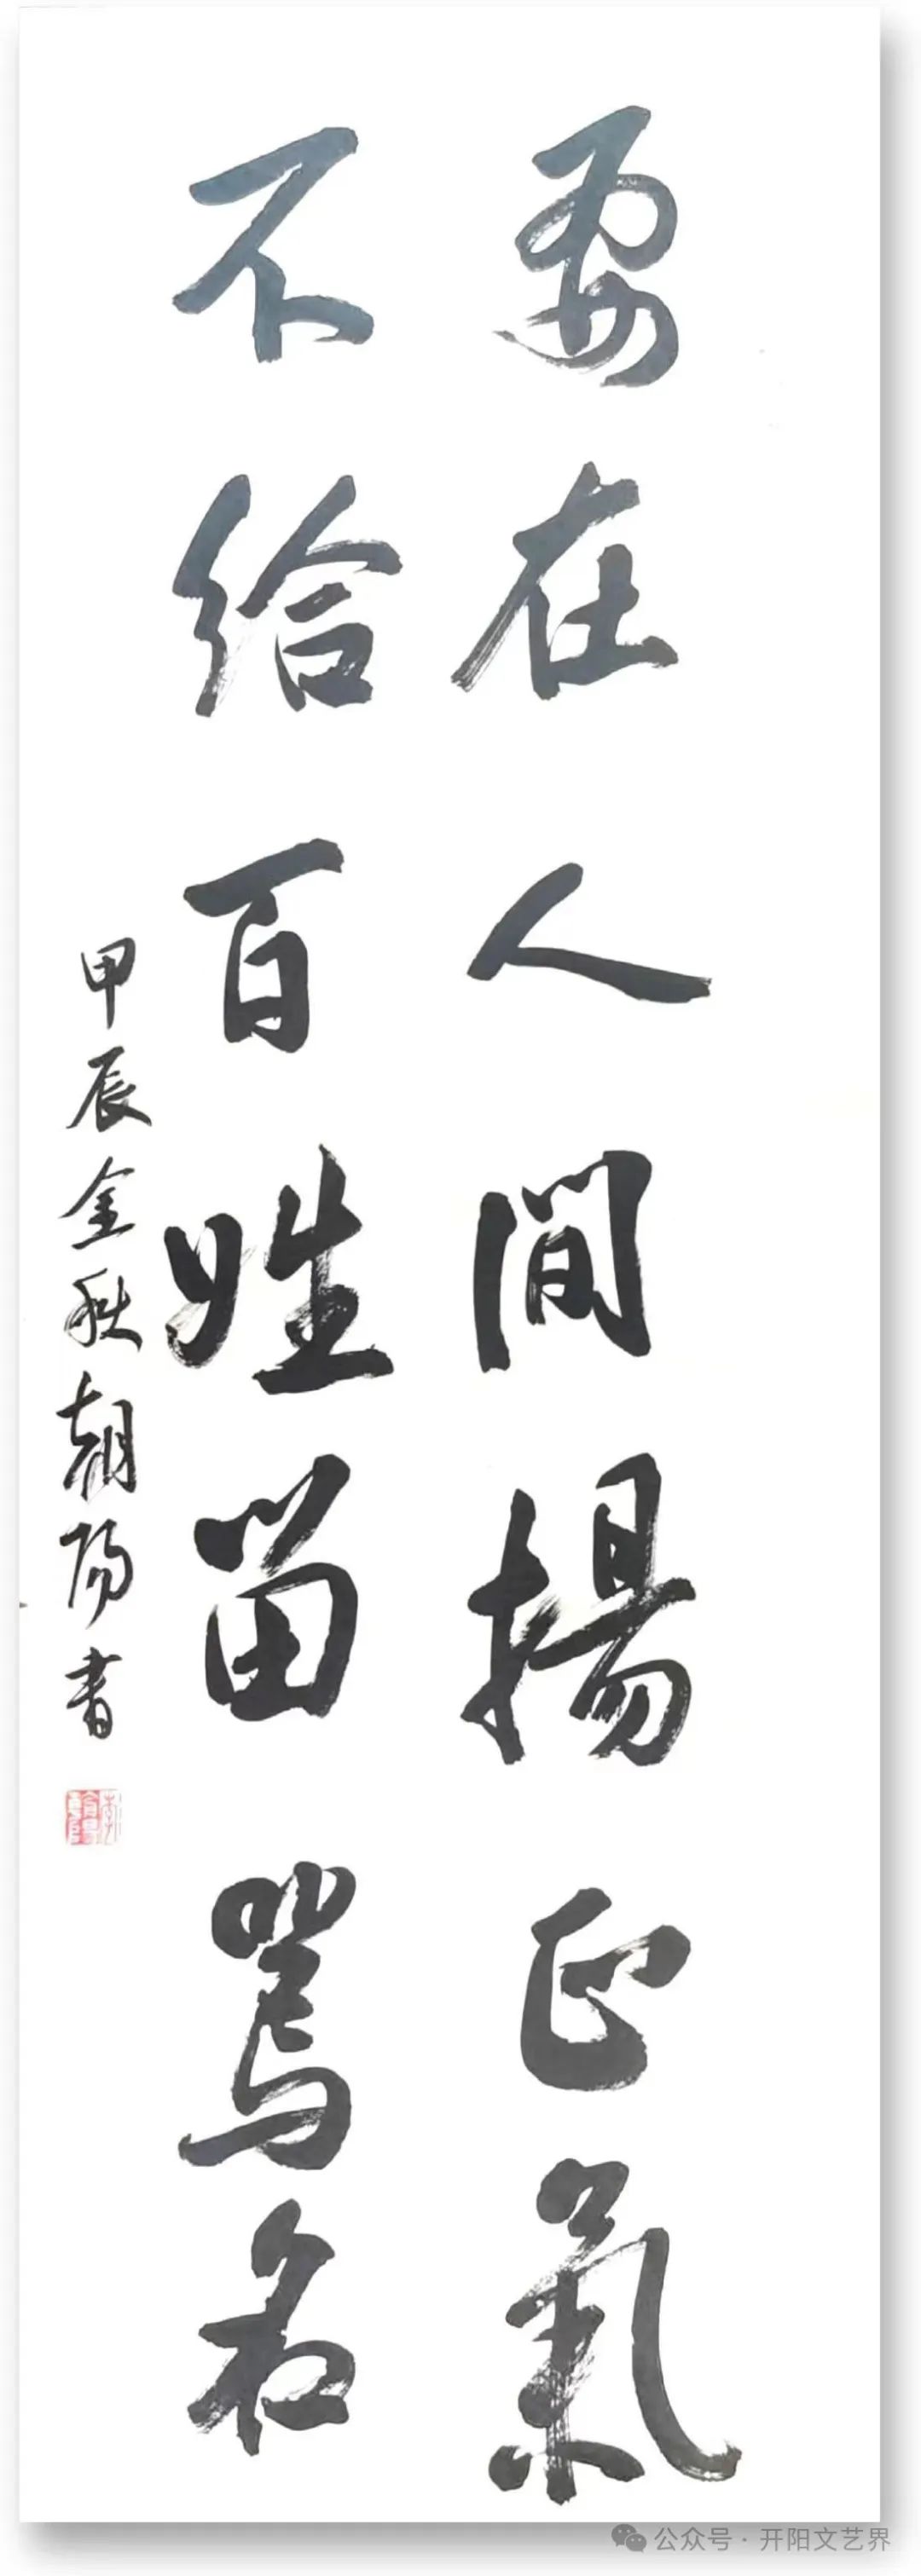 要在人間揚正氣
不給百姓留罵名
甲辰金秋朝陽書
公众号·开阳文艺界